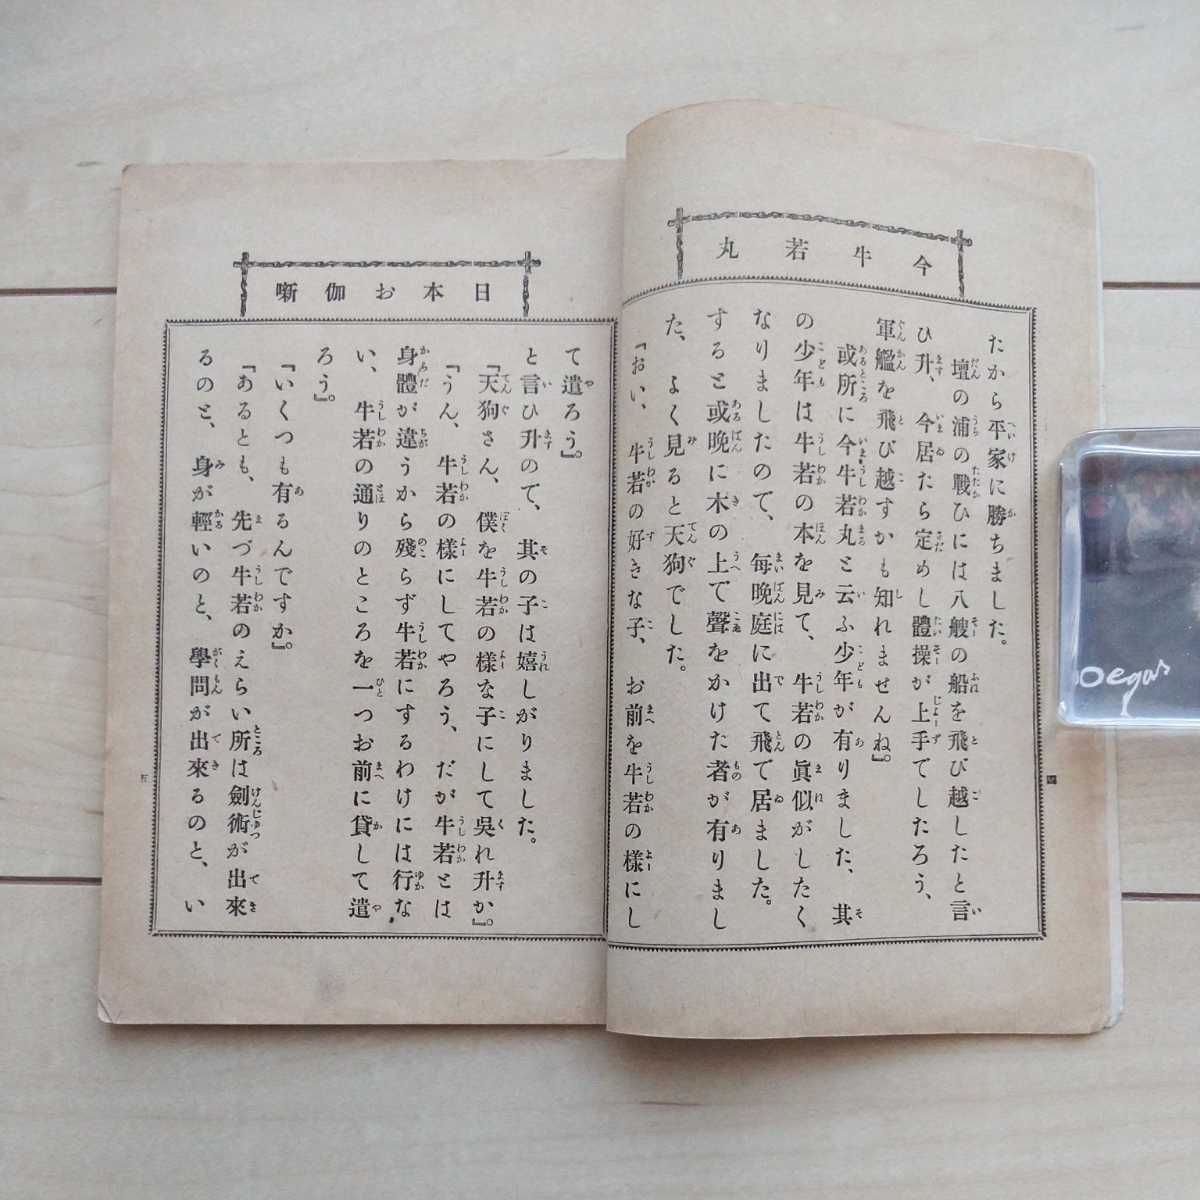 今牛若丸
たから平家に勝ちました。
壇の浦の戰ひには八艘の船を飛び越したと言
ひ升、今居たら定めし體操が上手でしたろう、
軍艦を飛び越すかも知れませんね』。
或所に今牛若丸と云ふ少年が有りました、其
の少年は牛若の本を見て、牛若の眞似がしたく
なりましたので、毎晩庭に出て飛で居ました。
すると或晩に木の上で聲をかけた者が有りまし
た、よく見ると天狗でした。
『おい、牛若の好きな子、お前を牛若の樣にし
四
日本お伽噺
て遣ろう』。
と言ひ升ので、其の子は嬉しがりました。
『天狗さん、僕を牛若の樣な子にして吳れ升か』。
『うん、牛若の樣にしてやろう、だが牛若とは
身體が違うから殘らず牛若にするわけには行な
い、牛若の通りのところを一つお前に貸して遣
ろう』。
『いくつも有るんですか』。
『あるとも、先づ牛若のえらい所は劍術が出來
るのと、身が輕いのと、學問が出來るのと、い
五
oegas